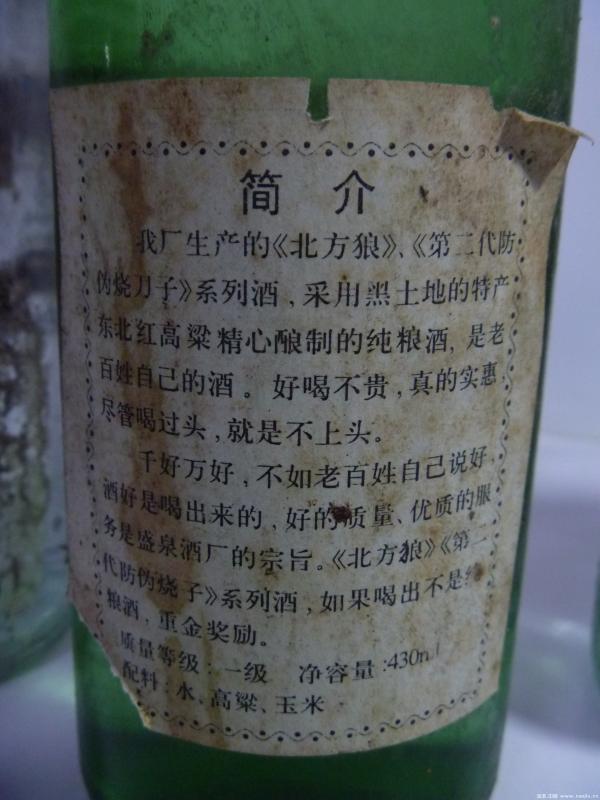 简 介
我厂生产的《北方狼》、《第二代防
伪烧刀子》系列酒，采用黑土地的特产
东北红高粱精心酿制的纯粮酒，是老
百姓自己的酒。好喝不贵，真的实惠，
尽管喝过头，就是不上头。
千好万好，不如老百姓自己说好，
酒好是喝出来的，好的质量、优质的服
务是盛泉酒厂的宗旨。《北方狼》《第
代防伪烧 子》系列酒，如果喝出不是纯
粮酒，重金奖励。
质量等级：一级 净容量：430m
配料：水、高粱、玉米